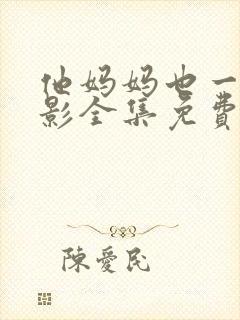 他妈妈也一
影全集免費
陳愛民